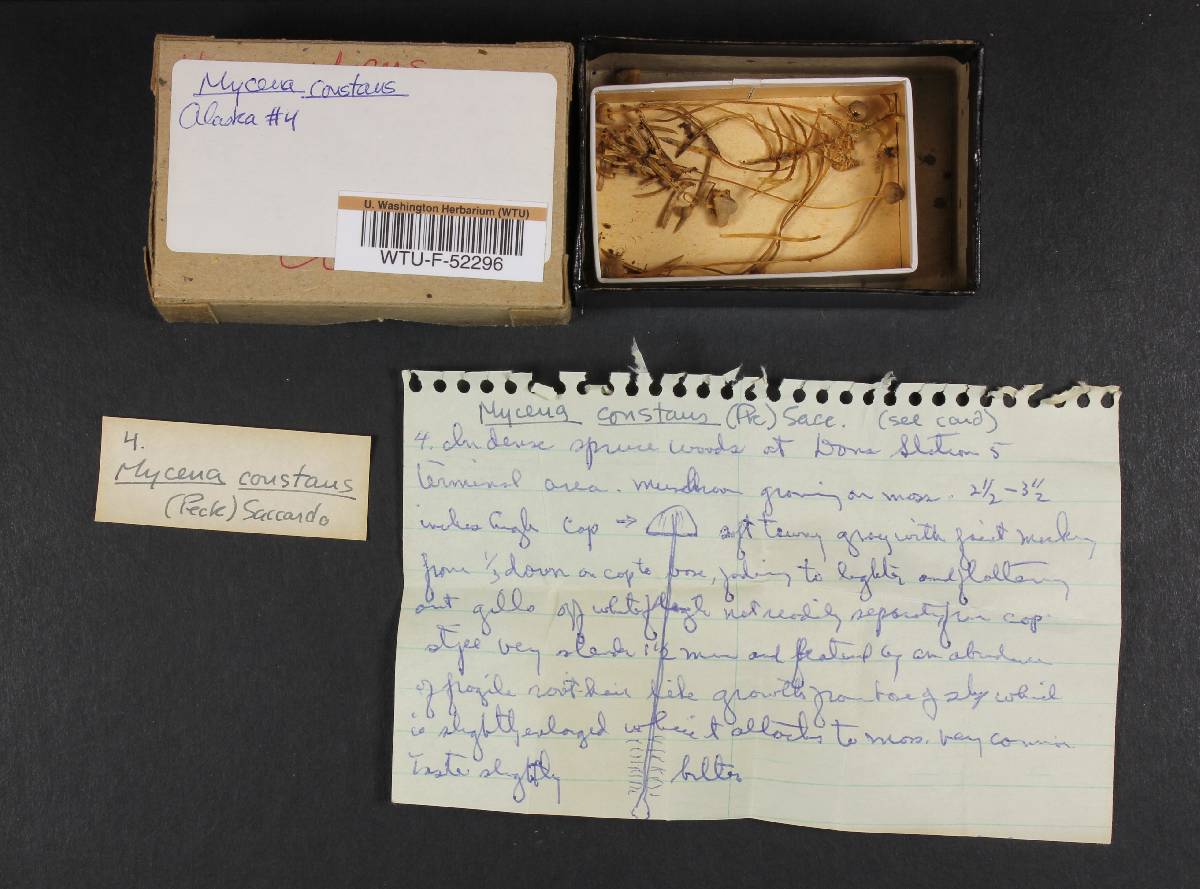 Mycena constans
Alaska #4
U. Washington Herbarium (WTU)
WTU-F-52296
4.
Mycena constans
(Peck) Saccardo
Mycena constans (Pk) Sacc. (see card)
4. In dense spruce woods at Station 5
terminal area. mushroom growing on moss. 2 1/2 - 3 1/2
inches high Cap → soft tawny gray with faint
from 1/3 down on cap to base, fading to lighter and flattening
out gills off white not readily separate from cap
very slender 1-2 mm and featured by an abundance
of fragile root-hair like growth from base of which
is slightly enlarged where it attaches to moss. very common
Taste slightly bitter